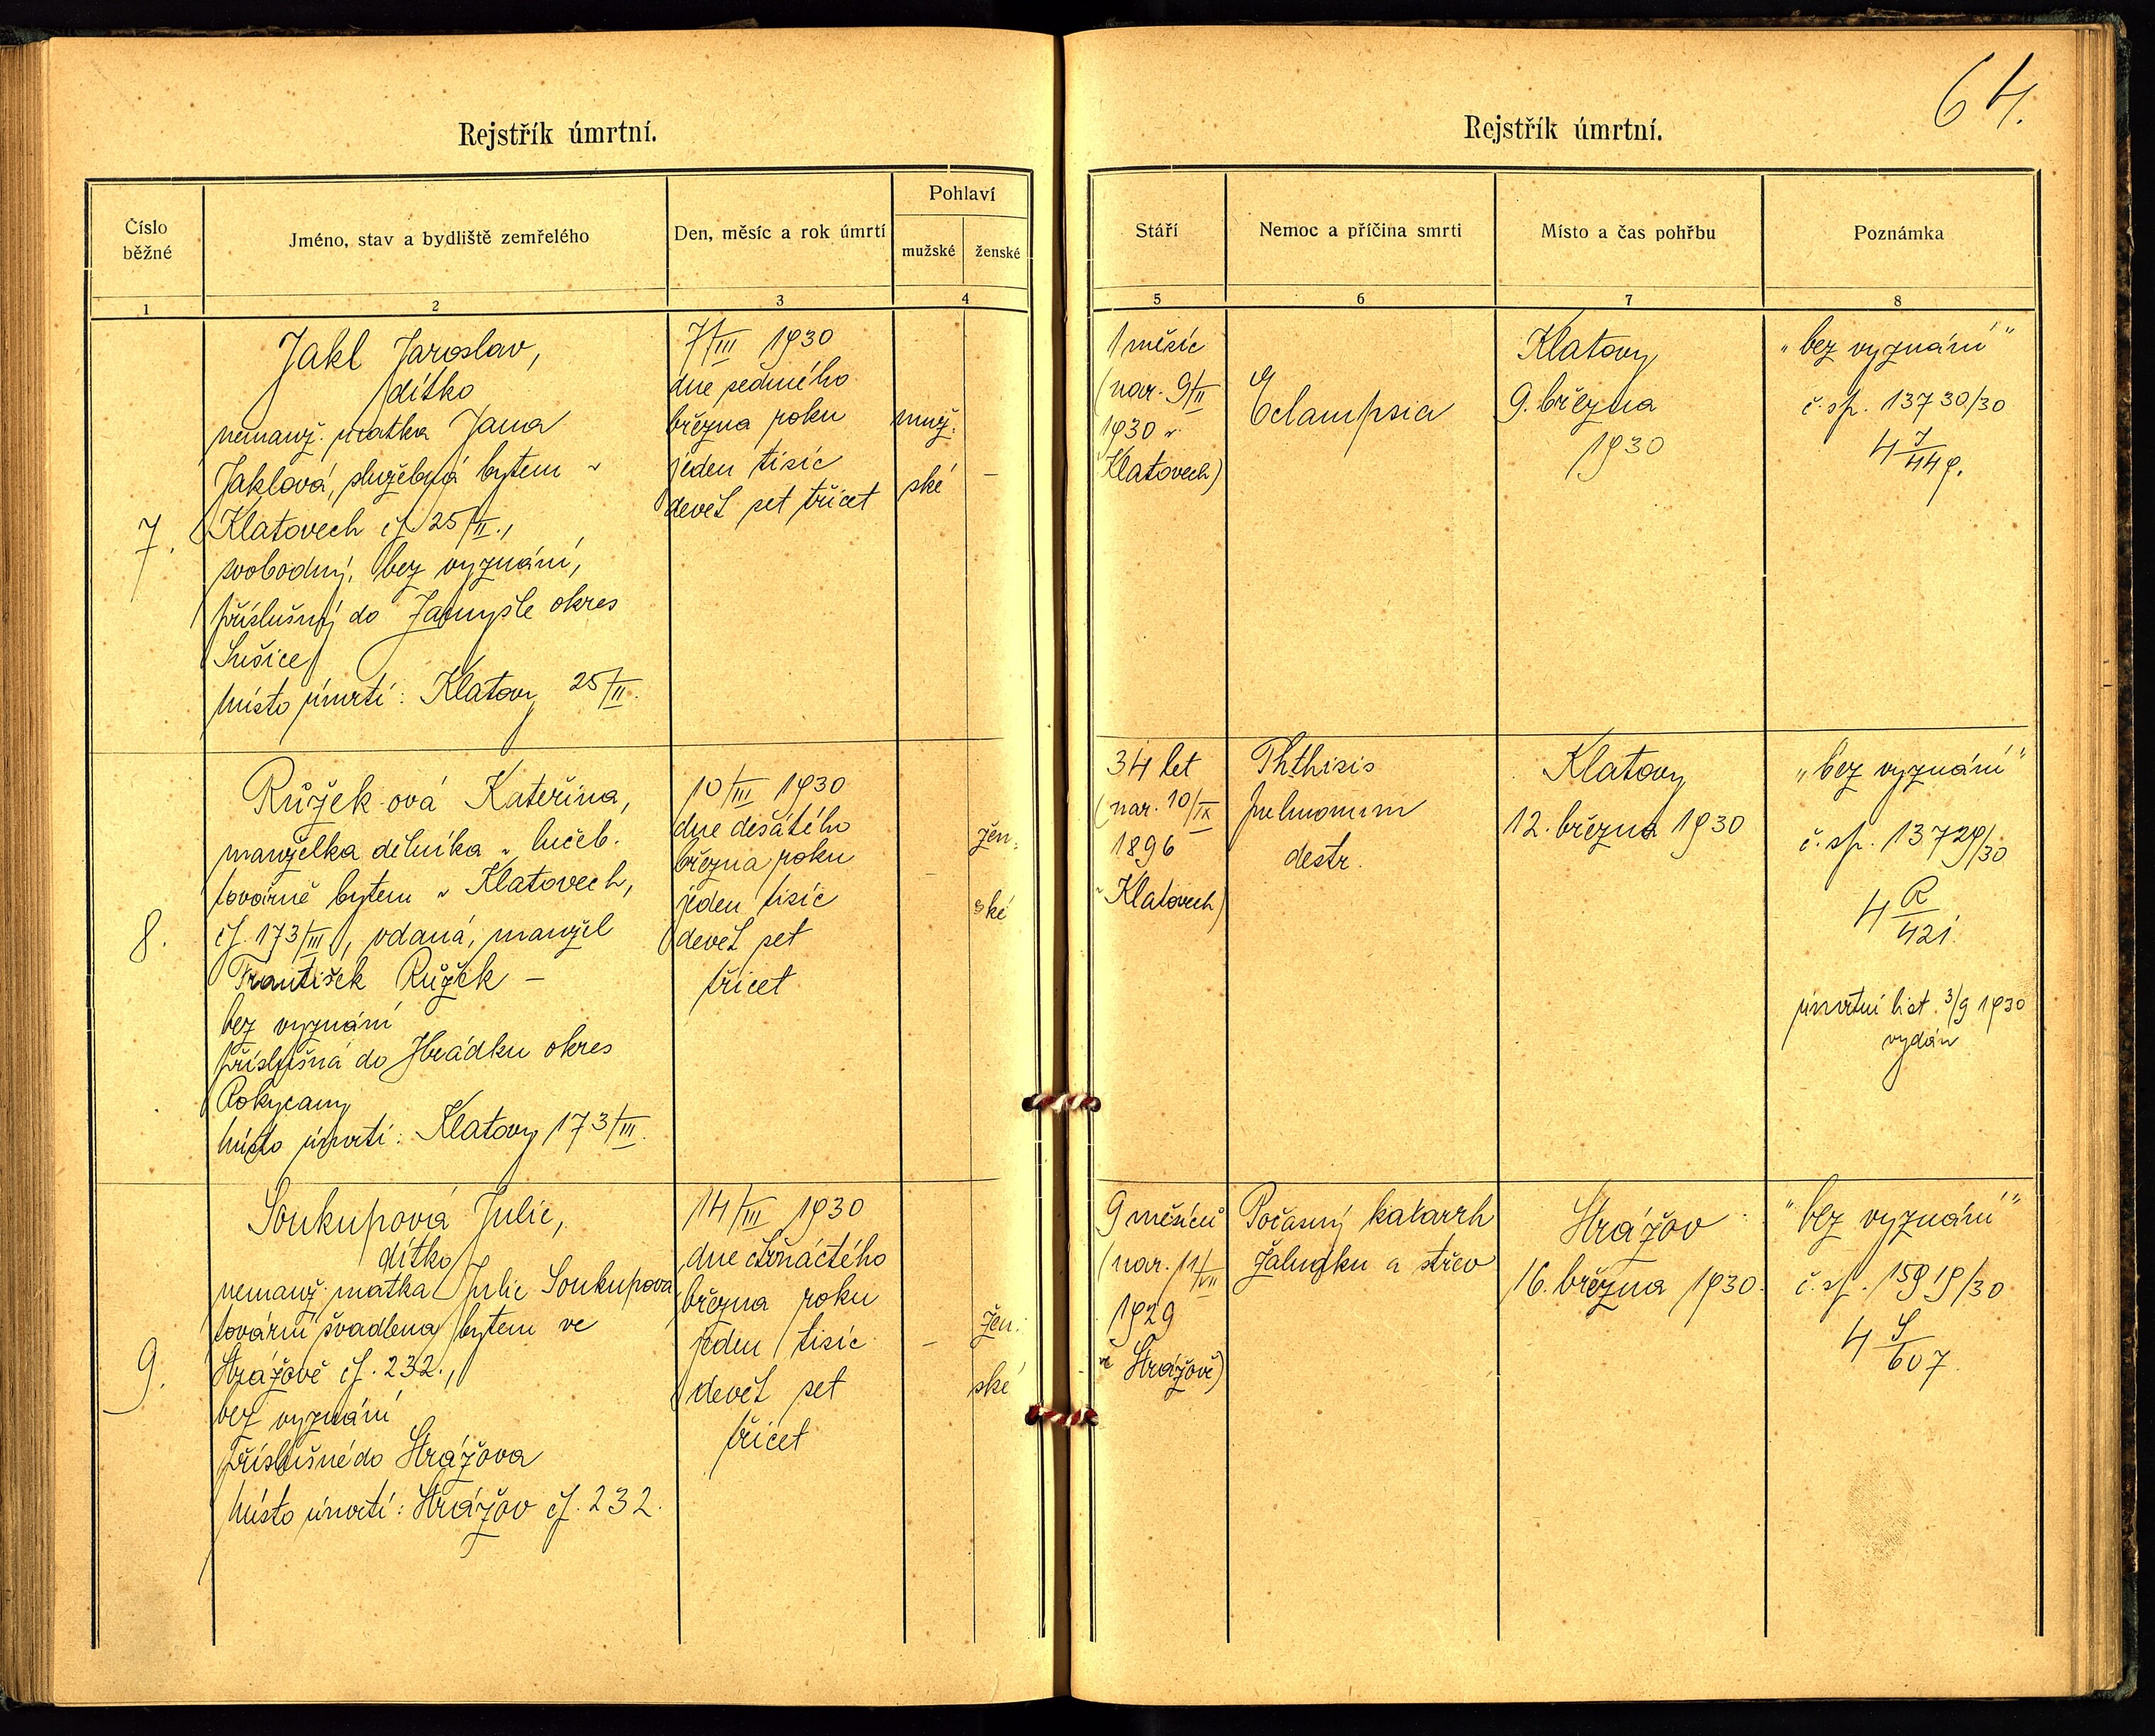 64.
Rejstřík úmrtní.
Číslo běžné
Jméno, stav a bydliště zemřelého
Den, měsíc a rok úmrtí
Pohlaví
mužské
ženské
1
2
3
4
7.
Jakl Jaroslav,
dítko
nemanž. matka Jana
Jaklová, služebná bytem v
Klatovech čp 25/II.,
svobodný, bez vyznání,
příslušný do Zamyšle okres
Sušice
Místo úmrtí: Klatovy 25/II.
7/III 1930
dne sedmého
března roku
jeden tisíc
devět set třicet
muž.
ské
–
8.
Růžek-ová Kateřina,
manželka dělníka v lučeb.
továrně bytem v Klatovech,
čp. 173/III, vdaná, manžel
František Růžek –
bez vyznání
příslušná do Hrádku okres
Rokycany
Místo úmrtí: Klatovy 173/III.
10/III 1930
dne desátého
března roku
jeden tisíc
devět set
třicet
–
žen.
ské
9.
Soukupová Julie,
dítko
nemanž. matka Julie Soukupova
tovární švadlena bytem ve
Strážově čp. 232.,
bez vyznání
příslušné do Strážova
Místo úmrtí: Strážov čp. 232.
14/III 1930
dne čtrnáctého
března roku
jeden tisíc
devět set
třicet
–
žen.
ské
Rejstřík úmrtní.
Stáří
Nemoc a příčina smrti
Místo a čas pohřbu
Poznámka
5
6
7
8
1 měsíc
(nar. 9/II
1930 v
Klatovech)
Eclampsia
Klatovy
9. března
1930
„bez vyznání"
č. sp. 13730/30
4 J/449.
34 let
(nar. 10/IX
1896
v Klatovech)
Phthisis
pulmonum
destr.
Klatovy
12. března 1930
„bez vyznání"
č. sp. 13729/30
4 R/421.
úmrtní list 3/9 1930
vydán
9 měsíců
(nar. 11/VII
1929
ve Strážově)
Počasný katarrh
žaludku a střev
Strážov
16. března 1930.
"bez vyznání"
č. sp. 15919/30
4 S/607.